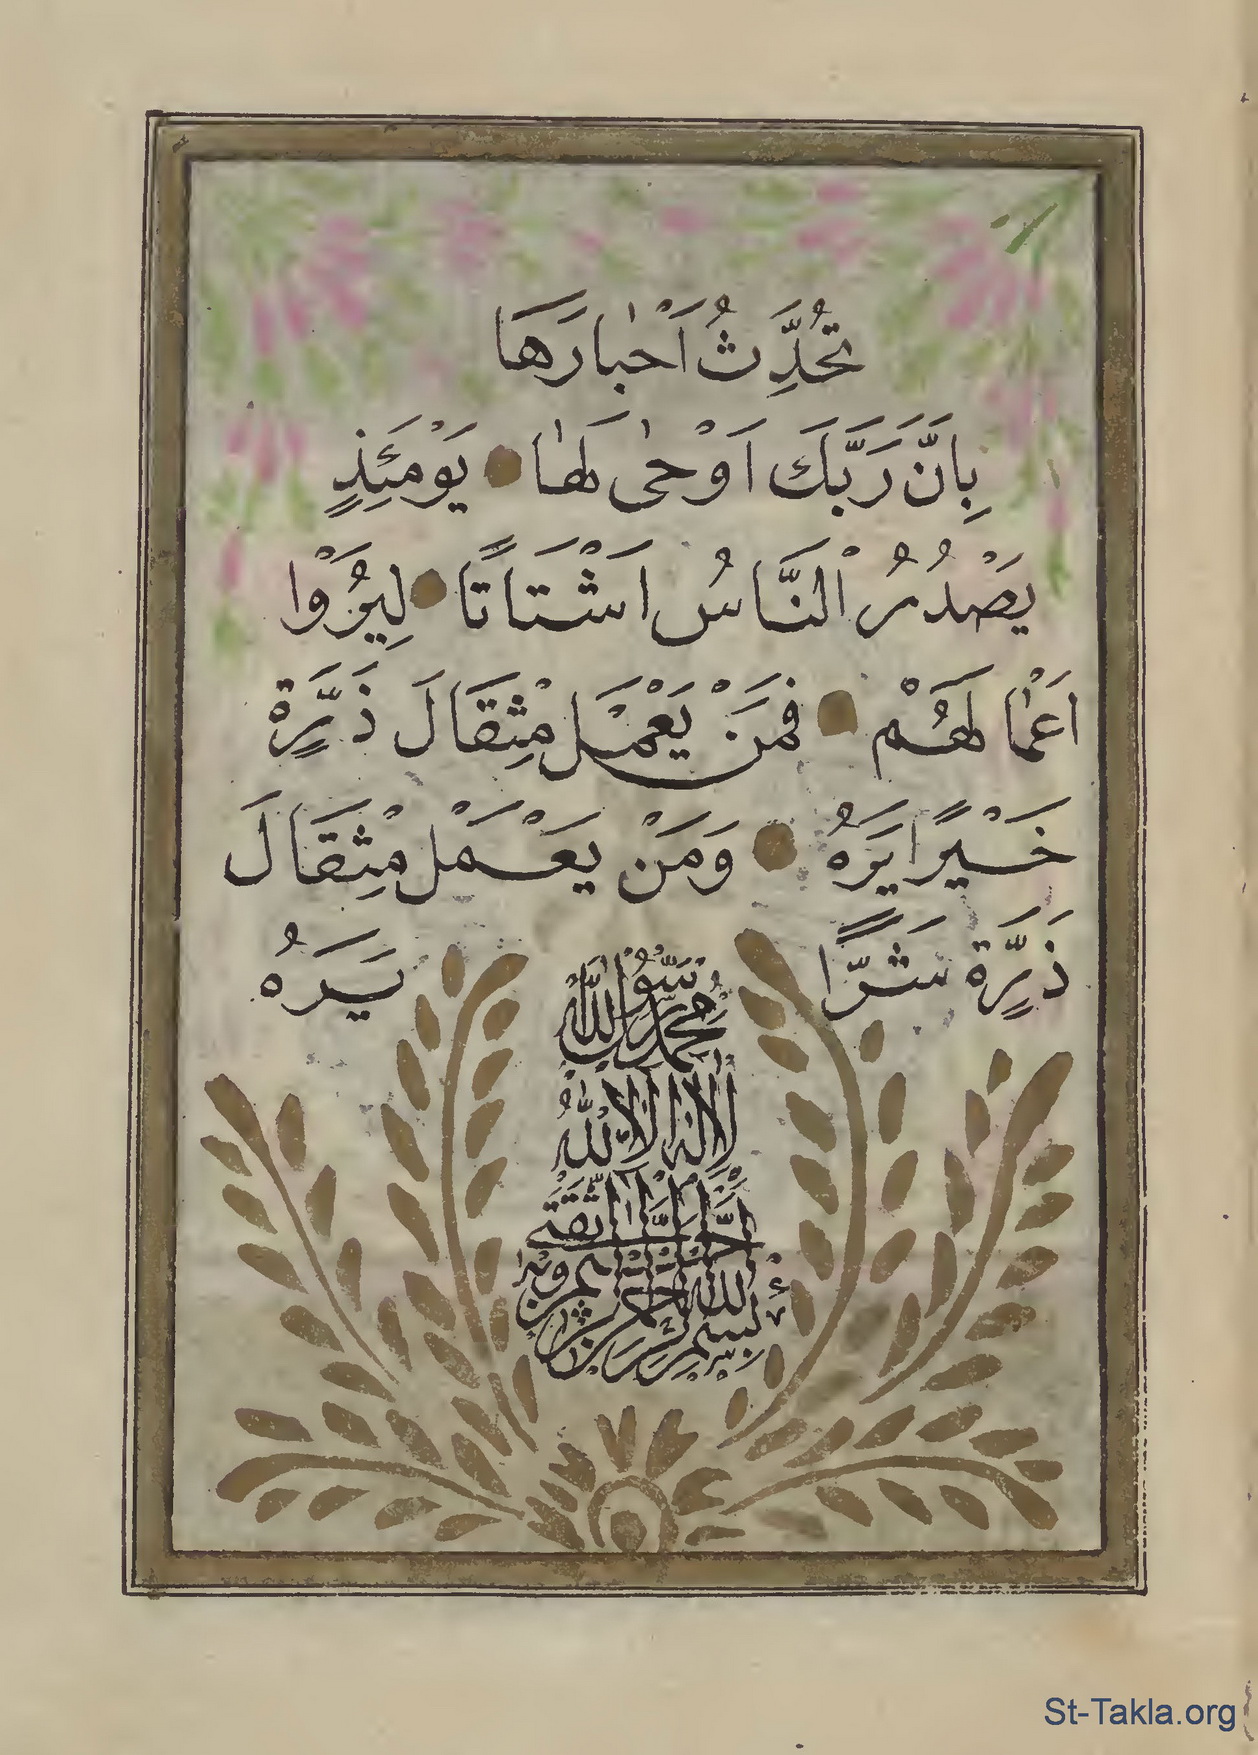 تُحَدِّثُ اَخْبَارَهَا
بِاَنَّ رَبَّكَ اَوْحٰى لَهَا يَوْمَئِذٍ
يَصْدُرُ النَّاسُ اَشْتَاتًا لِيُرَوْا
اَعْمَالَهُمْ فَمَنْ يَعْمَلْ مِثْقَالَ ذَرَّةٍ
خَيْرًا يَرَهُ وَمَنْ يَعْمَلْ مِثْقَالَ
ذَرَّةٍ شَرًّا يَرَهُ
مُحَمَّد رَسُولُ اللّٰه
لا اله الا الله
بسم الله الرحمن الرحيم
St-Takla.org